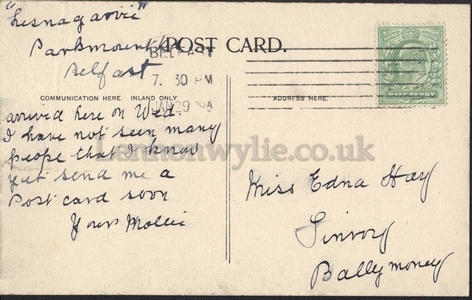 "Lesnagarvie"
Parkmount
Belfast
POST CARD.
BELFAST
7. 30 PM
JAN 29
COMMUNICATION HERE. INLAND ONLY
ADDRESS HERE.
arrived here on Wed.
I have not seen many
people that I know
yet send me a
Post card soon
Yours Mollie
Lennonwylie.co.uk
Miss Edna Hay
Ballymoney